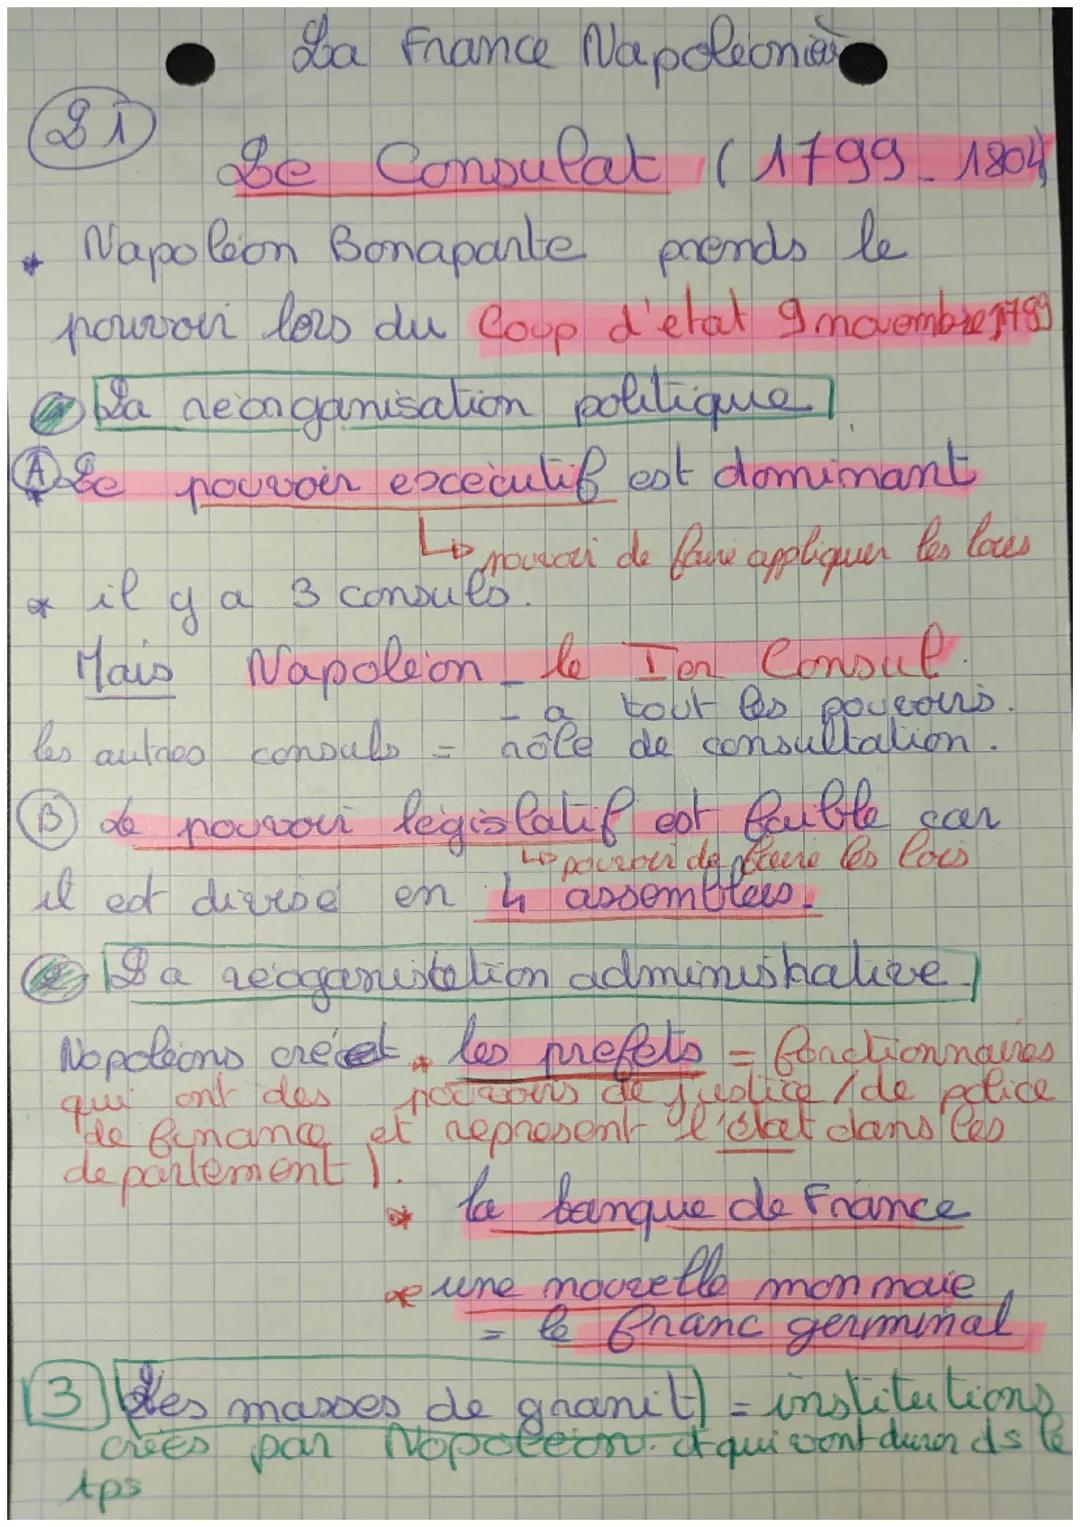 La France Napoléoni
21
Le Consulat (1799_1804)
* Napoléon Bonaparte prends le
pouvoir lors du Coup d'état 9 novembre 1799
La réorganisation politique
A Le pouvoir excécutif est dominant
↳ pouvoir de faire appliquer les lois
* il y a 3 consuls.
Mais Napoléon _ le Ier Consul.
- a tout les pouvoirs.
les autres consuls = rôle de consultation.
B Le pouvoir législatif est faible car
↳ pouvoir de faire les lois
il est divisé en 4 assemblées.
La réoganistation administrative
Napoléons crée * les préfets = fonctionnaires
qui ont des pouvoirs de justice / de police
de finance et représent l'état dans les
département).
* la banque de France
* une nouvelle monnaie
= le franc germinal
3 Les masses de granit) = institutions
crées par Napoléon. et qui vont durer ds le
tps